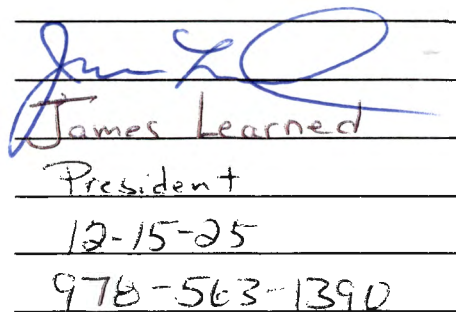 James Learned
President
12-15-25
978-563-1390